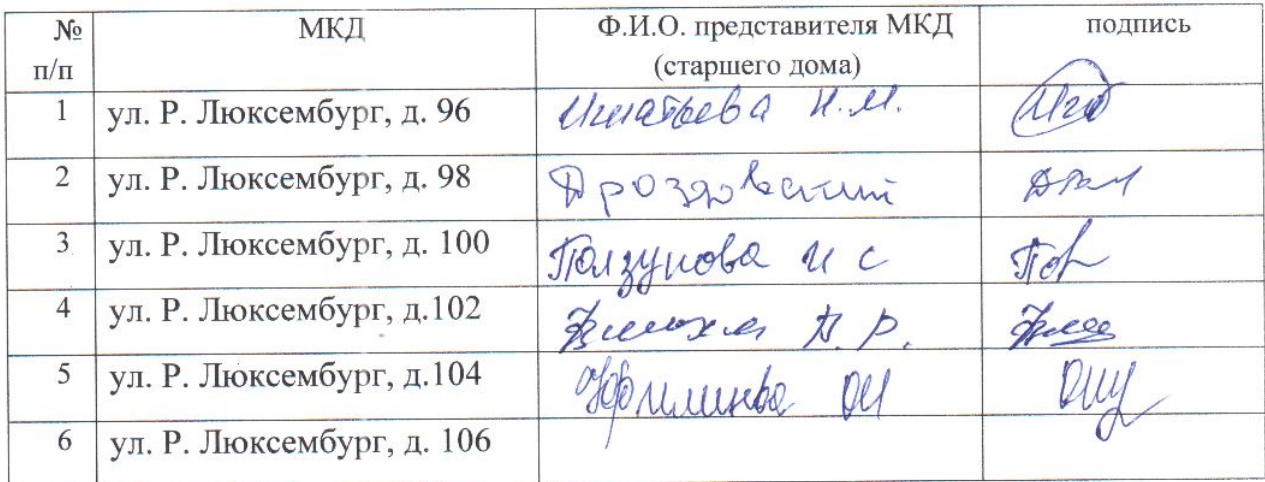 № п/п МКД Ф.И.О. представителя МКД (старшего дома) подпись
1 ул. Р. Люксембург, д. 96 Игнатьева Н.М.
2 ул. Р. Люксембург, д. 98 Дроздовский
3 ул. Р. Люксембург, д. 100 Ползунова И С
4 ул. Р. Люксембург, д.102
5 ул. Р. Люксембург, д.104
6 ул. Р. Люксембург, д. 106